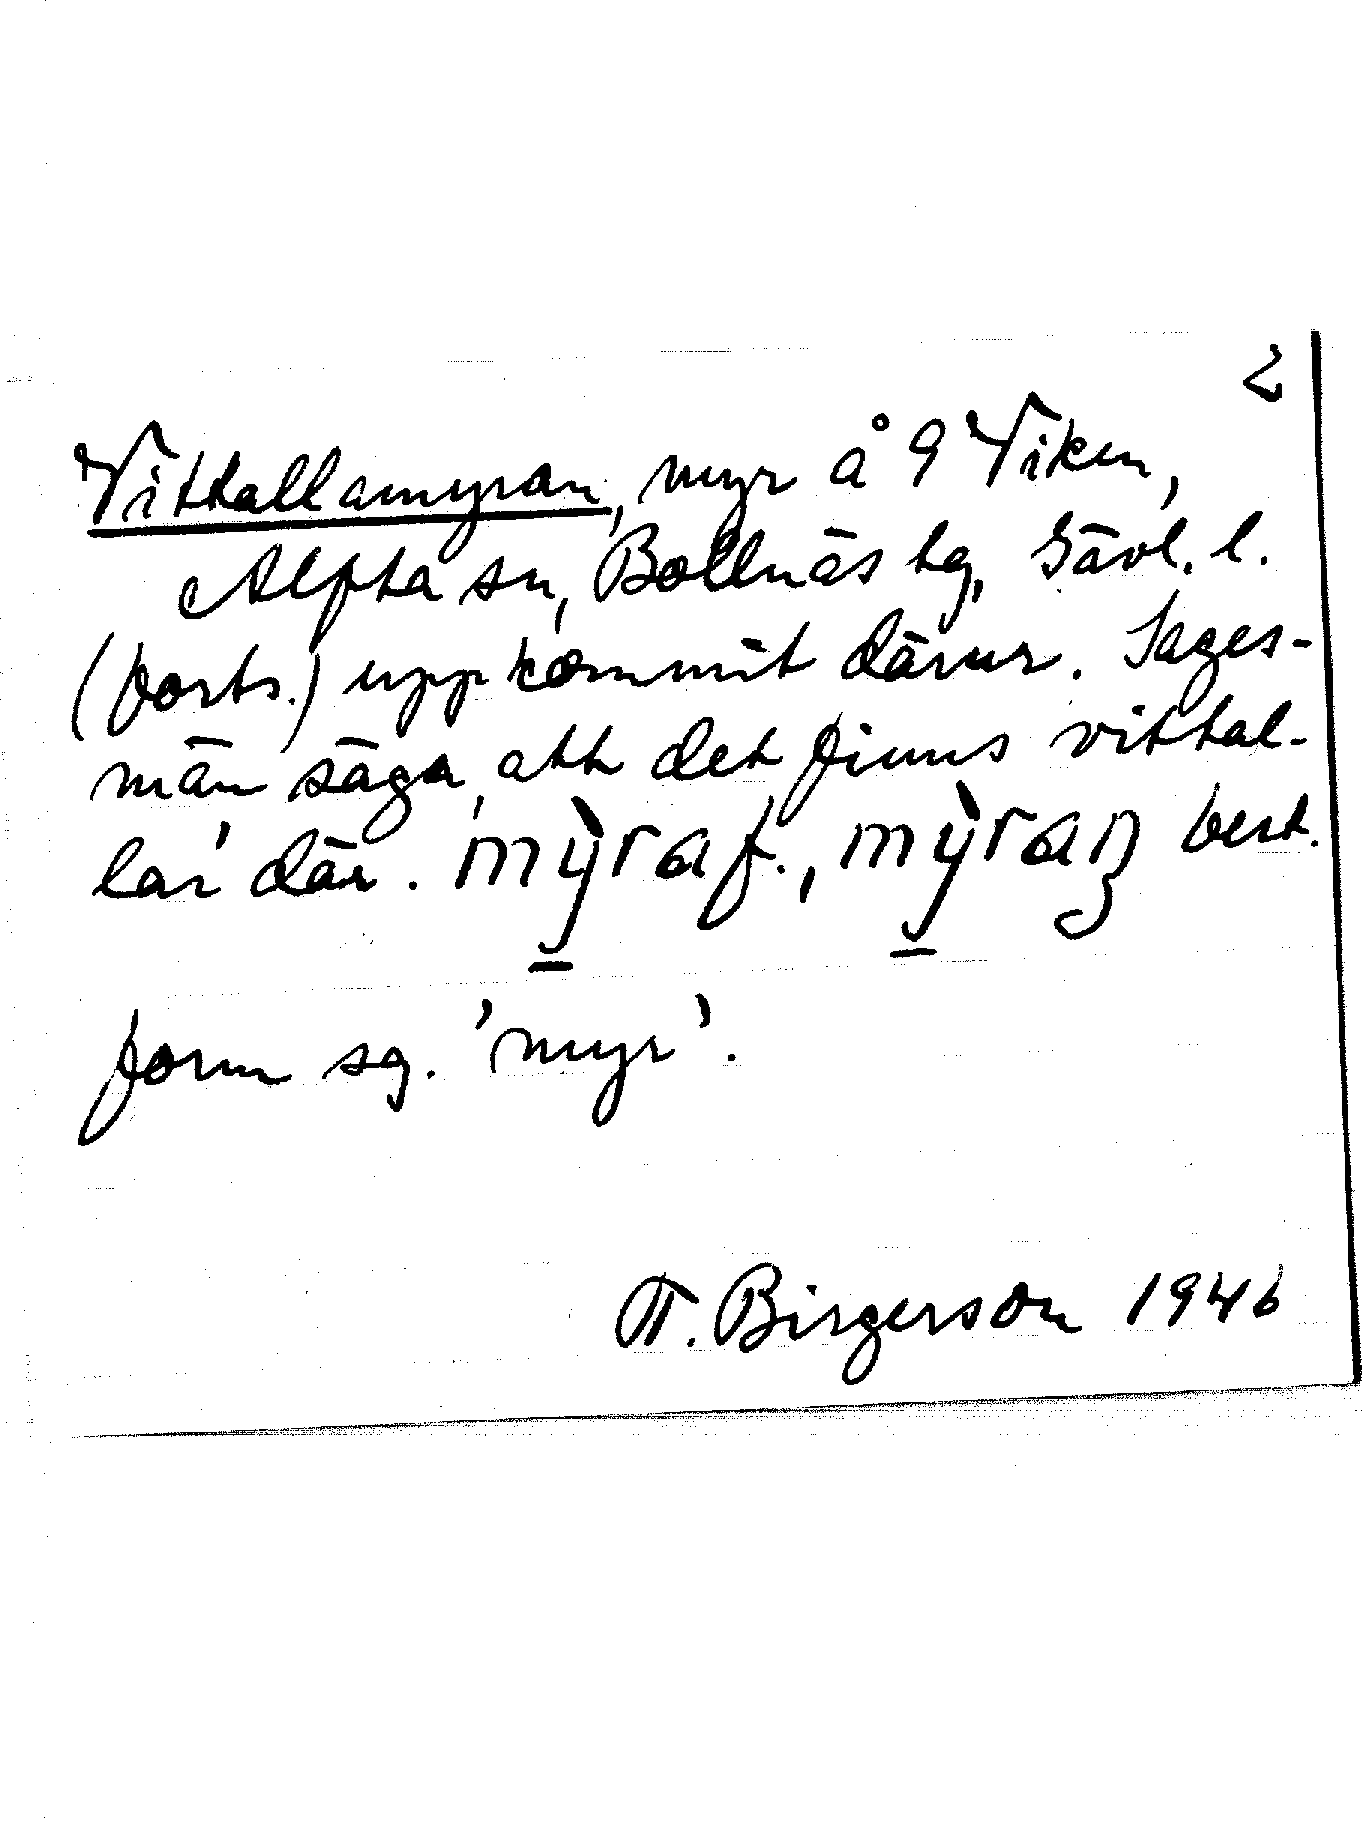 2
Vittallamyran, myr å 9 Viken,
Alfta sn, Bollnäs tg, Gävl. l.
(forts.) uppkommit därur. Sages-
män säga, att det finns 'vittal-
lar' där. mỳra f., mỳran best.
form sg. 'myr'.
T. Birgerson 1946